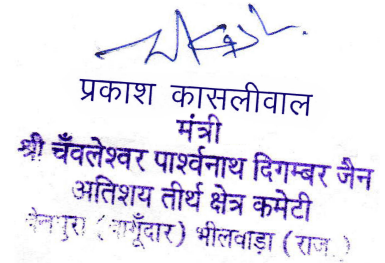 प्रकाश कासलीवाल
मंत्री
श्री चँवलेश्वर पार्श्वनाथ दिगम्बर जैन
अतिशय तीर्थ क्षेत्र कमेटी
भीलवाड़ा (राज.)